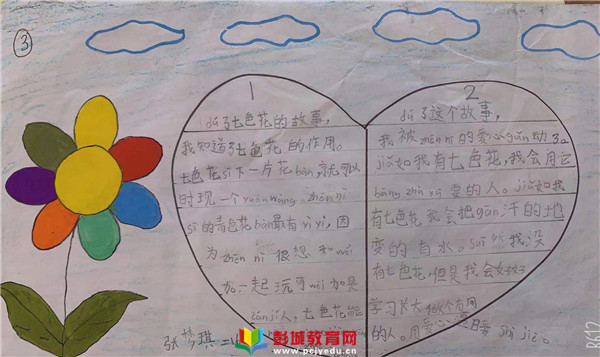 ③
1
dú了七色花的故事,
我知道了七色花的作用。
七色花sī下一片花bàn,就可以
时现一个yuàn wàng。zhēn nī
sī的青色花bàn最有yì yì,因
为zhēn nī很想和wéi
加一起玩可wéi加是
cán jí人。七色花能
张梦琪
2
dú了这个故事,
我被zhēn nī的爱心gǎn动了。
jiǎ如我有七色花,我会用它
bāng zhù xū要的人。jiǎ如我
有七色花我会把gān汗的土也
变的有水。Suī然我没
有七色花,但是我会好好
学习长大做个有用
的人。用爱心shì jiè。
彭城教育网
www.pcjyedu.com